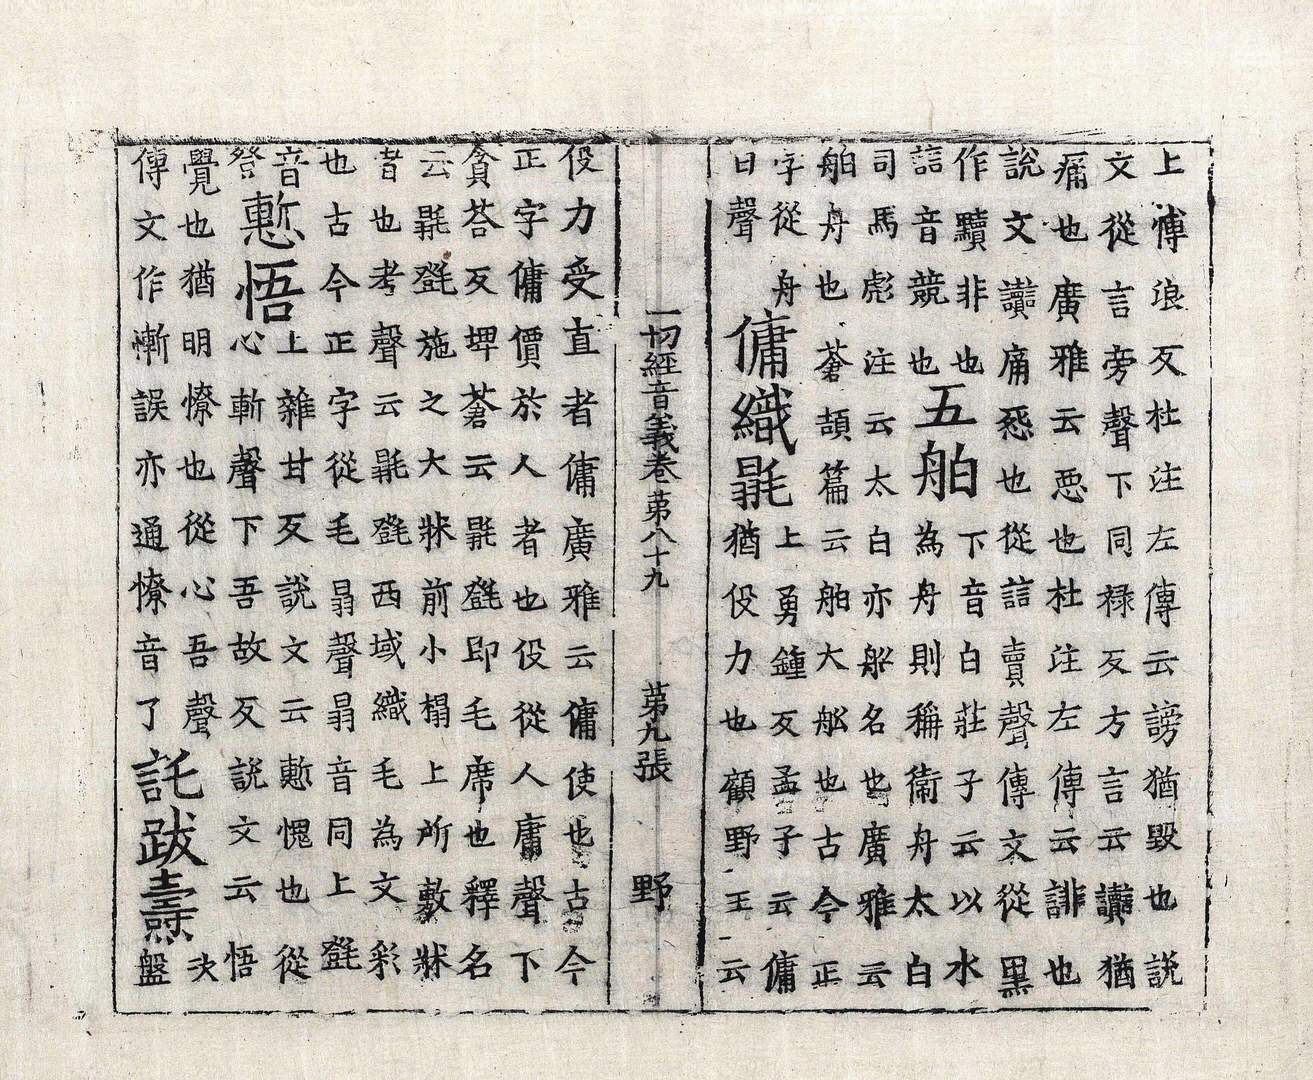 上愽浪反杜注左傳云謗猶毀也說
文從言旁聲下同祿反方言云讟猶
痛也廣雅云惡也杜注左傳云誹也
說文讟痛惡也從誩賣聲傳文從黑
作黷非也下音白莊子云以水
誩音競也五舶為舟則稱衛舟太白
司馬彪注云太白亦舩名也廣雅云
舶舟也蒼頡篇云舶大舩也古今正
字從舟上勇鍾反孟子云傭
日聲傭織毾猶役力也顧野王云
一切經音義卷第八十九 第九張 野
役力受直者傭廣雅云傭使也古今
正字傭價於人者也役從人庸聲下
貪荅反埤蒼云毾㲪即毛席也釋名
云毾㲪施之大牀前小榻上所敷牀
者也考聲云毾㲪西域織毛為文彩
也古今正字從毛㬱聲㬱音同上㲪
音慙悟上雜甘反說文云慙愧也從
登心斬聲下吾故反說文云悟
覺也猶明憭也從心吾聲
傳文作慚誤亦通憭音了託跋燾盤